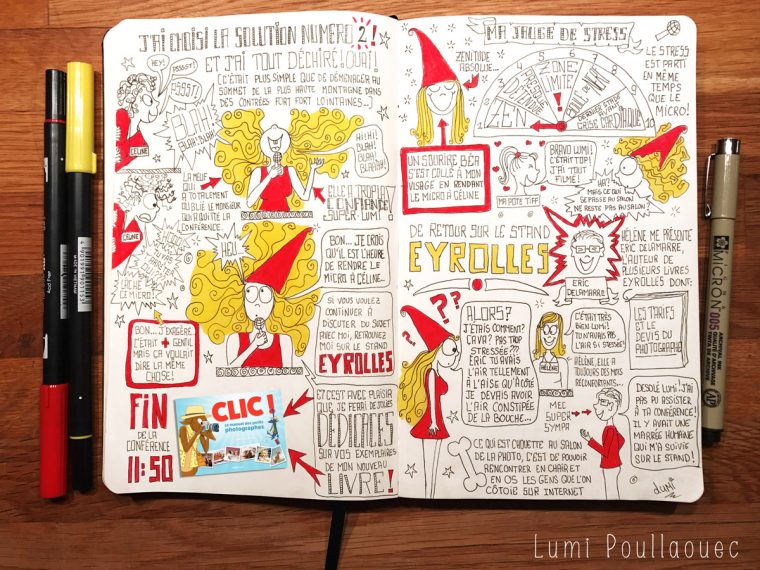 J'AI CHOISI LA SOLUTION NUMERO 2!
ET J'AI TOUT DÉCHIRÉ! OUAI!
(C'ÉTAIT PLUS SIMPLE QUE DE DÉMÉNAGER AU
SOMMET DE LA PLUS HAUTE MONTAGNE DANS
DES CONTRÉES FORT FORT LOINTAINES...)
HEY!
PSSST!
PSSST!
CÉLINE
BLAH!
BLAH! BLAH!
HIHI!
BLAH!
BLAH!
BLAGH!
LA MEUF
QUI A
TOTALEMENT
OUBLIÉ LE MONSIEUR
QUI A QUITTÉ LA
CONFÉRENCE.
ELLE A TROP LA
CONFIANCE
SUPER-LUMI!
CÉLINE
LÂCHE
CE MICRO!
HEU...
BON... JE CROIS
QU'IL EST L'HEURE
DE RENDRE LE
MICRO À CÉLINE.
BON... J'EXAGÈRE...
C'ÉTAIT + GENTIL
MAIS ÇA VOULAIT
DIRE LA MÊME
CHOSE!
SI VOUS VOULEZ
CONTINUER À
DISCUTER DU SUJET
AVEC MOI, RETROUVEZ
MOI SUR LE STAND
EYROLLES
FIN
DE LA
CONFÉRENCE
11:50
CLIC!
Le manuel des petits
photographes
ET C'EST AVEC PLAISIR
QUE JE FERAI DE JOLIES
DÉDICACES
SUR VOS EXEMPLAIRES
DE MON NOUVEAU
LIVRE!
MA JAUGE DE STRESS
ZENITUDE
ABSOLUE...
ZEN
PRESQUE
ZONE
LIMITE
DERNIER STADE AVANT
CRISE CARDIAQUE
LE STRESS
EST PARTI
EN MÊME
TEMPS
QUE LE
MICRO!
UN SOURIRE BÉA
S'EST COLLÉ À MON
VISAGE EN RENDANT
LE MICRO À CÉLINE
MA POTE TIFF
BRAVO LUMI!
C'ÉTAIT TOP!
J'AI TOUT
FILMÉ!
HA?
MAIS CE QUI
SE PASSE AU SALON
NE RESTE PAS AU SALON?
DE RETOUR SUR LE STAND
EYROLLES
ERIC
DELAMARRE
HÉLÈNE ME PRÉSENTE
ERIC DELAMARRE,
L'AUTEUR DE
PLUSIEURS LIVRES
EYROLLES DONT:
LES TARIFS
ET LE
DEVIS DU
PHOTOGRAPHE
???
ALORS?
J'ÉTAIS COMMENT?
ÇAVA? PAS TROP
STRESSÉE???
PARCE QUE TU AVAIS
L'AIR TELLEMENT
À L'AISE QU'À CÔTÉ
JE DEVAIS AVOIR
L'AIR CONSTIPÉE
DE LA BOUCHE...
HÉLÈNE
C'ÉTAIT TRÈS
BIEN LUMI!
TU N'AVAIS PAS
L'AIR SI STRESSÉE!
HÉLÈNE, ELLE A
TOUJOURS DES MOTS
RÉCONFORTANTS...
MEC
SUPER
SYMPA
DÉSOLÉ LUMI! J'AI
PAS PU ASSISTER
À TA CONFÉRENCE!
IL Y AVAIT UNE
MARRÉE HUMAINE
QUI M'A SUIVIE
SUR LE STAND!
CE QUI EST CHOUETTE AU SALON
DE LA PHOTO, C'EST DE POUVOIR
RENCONTRER EN CHAIR ET
EN OS LES GENS QUE L'ON
CÔTOIE SUR INTERNET
Lumi
MICRON
005
Lumi Poullaouec